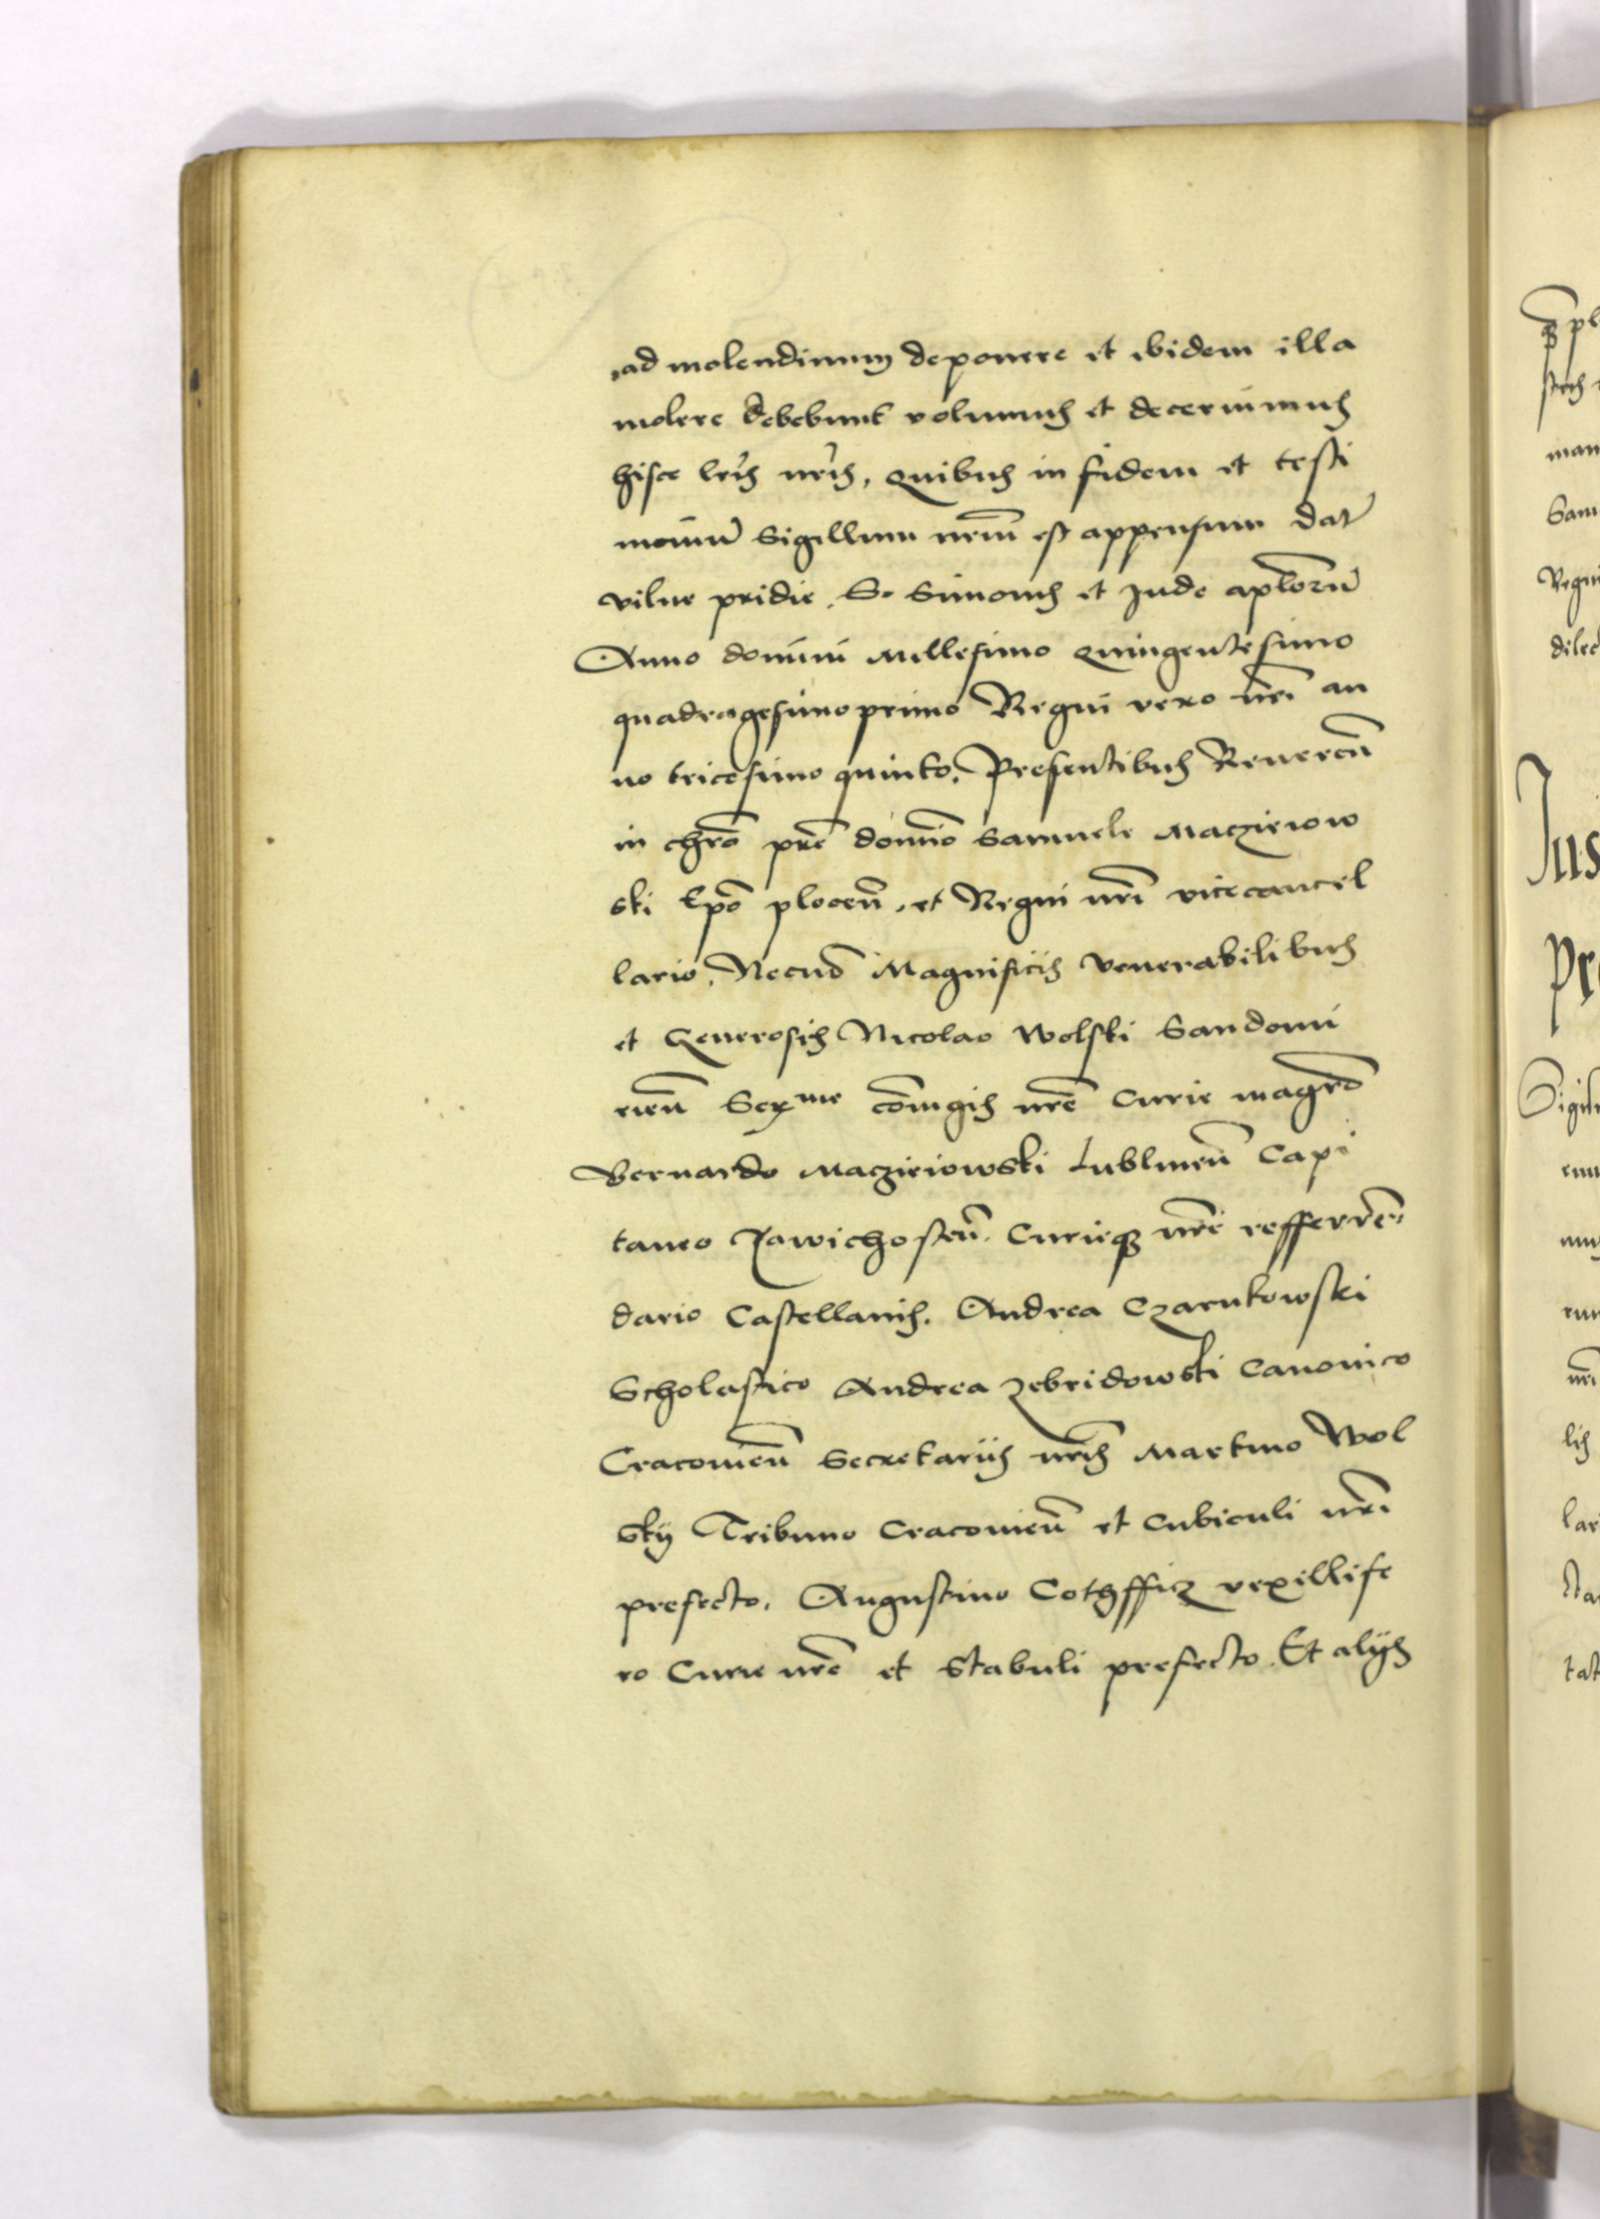 ad molendinum deponere et ibidem illa
molere debebunt volumus et decerninus
hisce lris nris, Quibus in fidem et testi
moniu Sigillum nrm est appensum Dat
vilne pridie S. Simonis et Jude aploru
Anno domini Millesimo Quingentesimo
quadragesimo primo Regni vero nri an
no tricesimo quinto. Presentibus Reueren
in chro pre domino Samuele Macziejow
ski Epo plocen. et Regni nri vicecancel
lario, Necno Magnificis Venerabilibus
et Generosis Nicolao Wolski Sandomi
rien Serme coniugis nre Curie magro
Bernardo Macziejowski Lublinen Capi
taneo Zawichosten. Curieqz nre refferren
dario Castellanis. Andrea Czarnkowski
Scholastico Andrea Zebridowski Canonico
Cracovien Secretariis nris Martino Wol
sky Tribuno Cracovien et Cubiculi nri
prefecto. Augustino Cothfficz vexillife
ro Curie nre et Stabuli prefecto. Et alijs